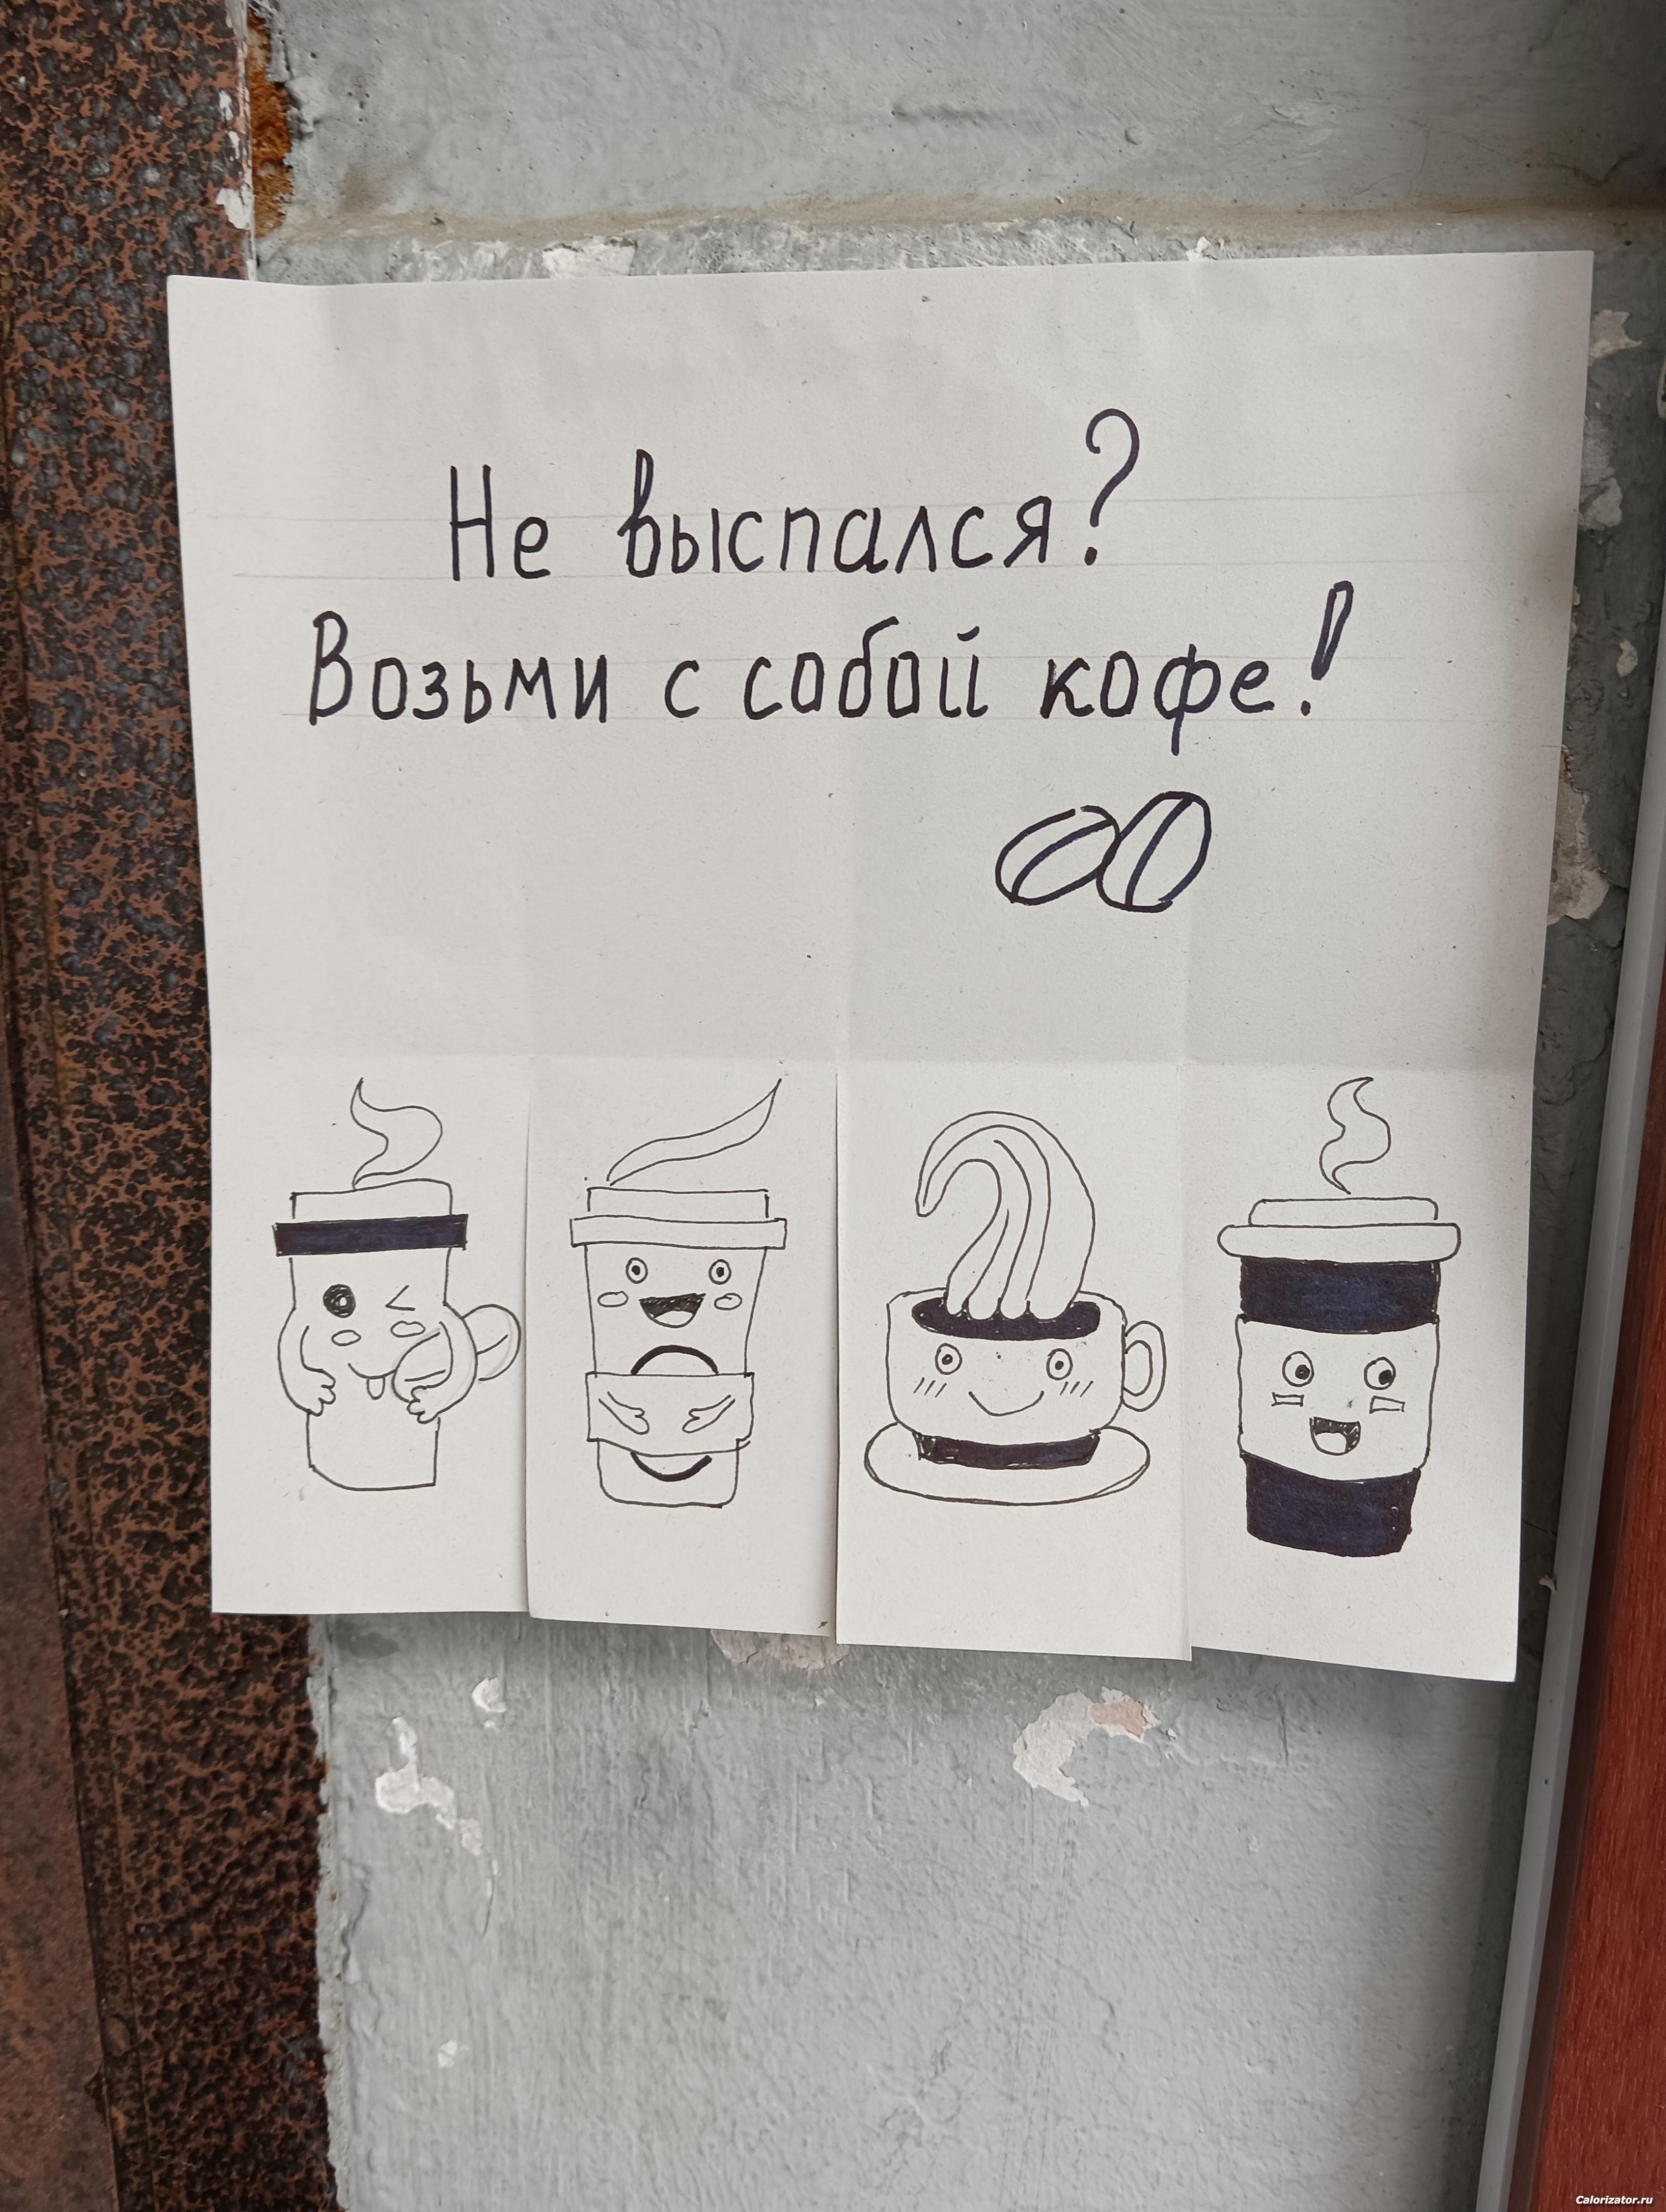 Не выспался?
Возьми с собой кофе!
Calorizator.ru